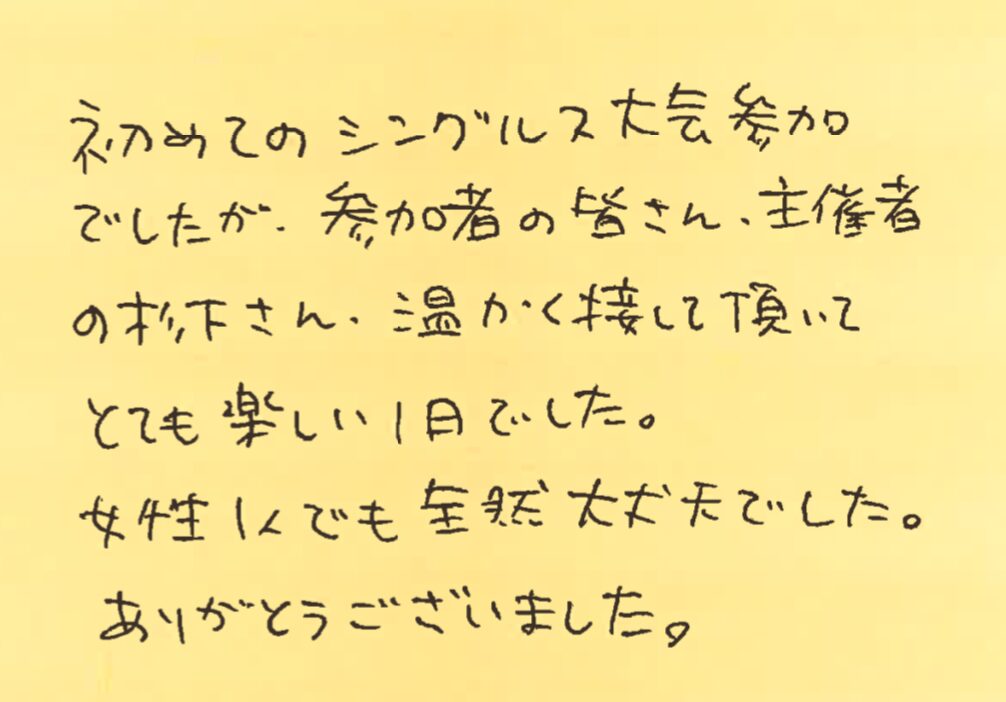 初めてのシングルス大会参加
でしたが、参加者の皆さん、主催者
の杉下さん、温かく接して頂いて
とても楽しい1日でした。
女性1人でも全然大丈夫でした。
ありがとうございました。